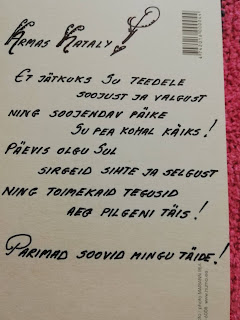 Armas Nataly
Et jätkuks Su teedele
soojust ja valgust
ning soojendav päike
Su pea kohal käiks!
Päevis olgu Sul
sirgeid sihte ja selgust
ning toimekaid tegusid
aeg pilgeni täis!
Parimad soovid mingu täide!